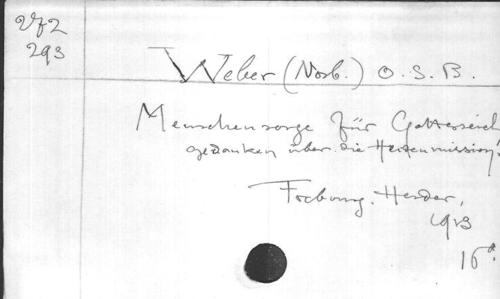 293
Weber (Norb.) O. S. B.
Menschensorge für Gottesreich
gedanken über die Heidenmission.
Freiburg, Herder,
1913